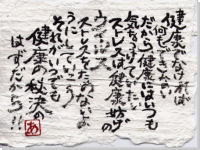 健康でなければ
何もできません
だから健康にはいつも
気をつけていたい
ストレスは健康妨げの
ウイルス
ストレスをためないよ
うにしていこう
それがいつまでも
健康の秘決の
はずだから!!
あ